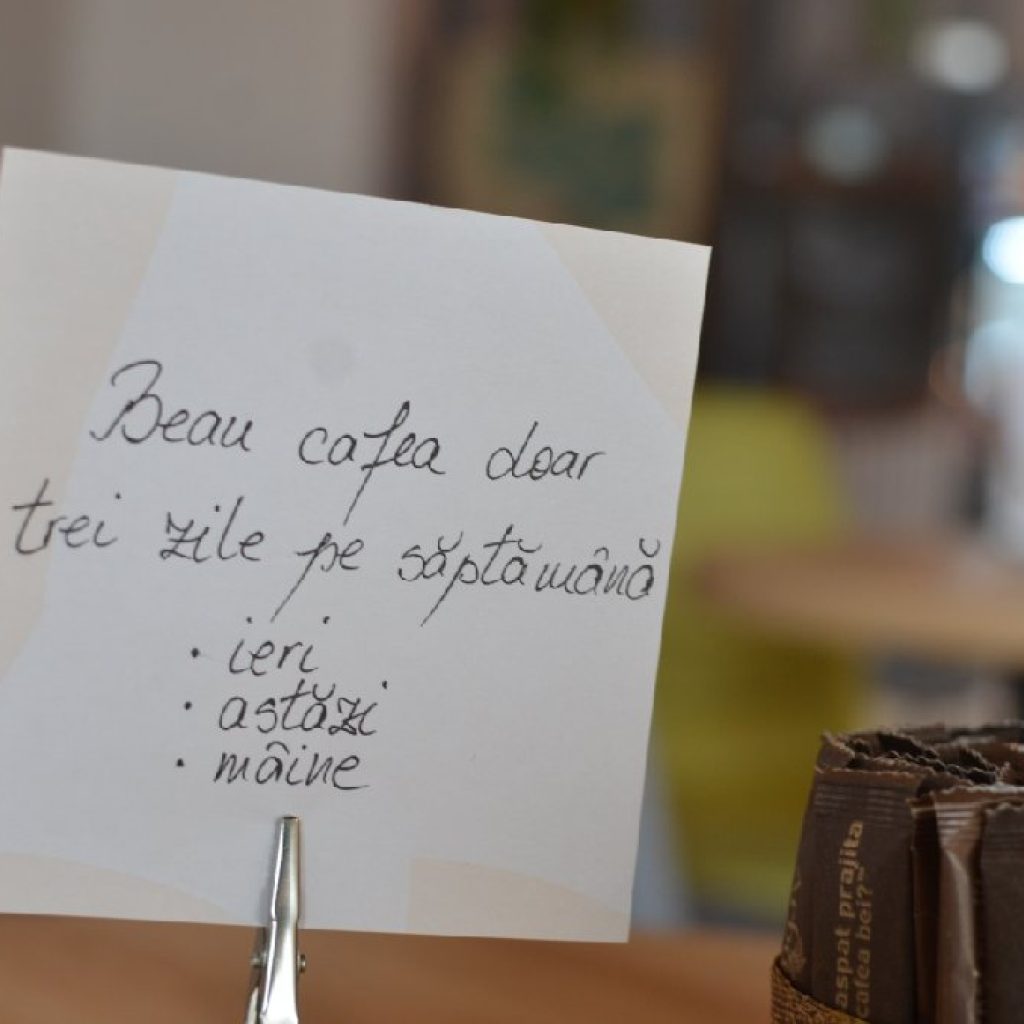 Beau cafea doar
trei zile pe săptămână
• ieri
• astăzi
• mâine
aspat prajita
cafea bei?"